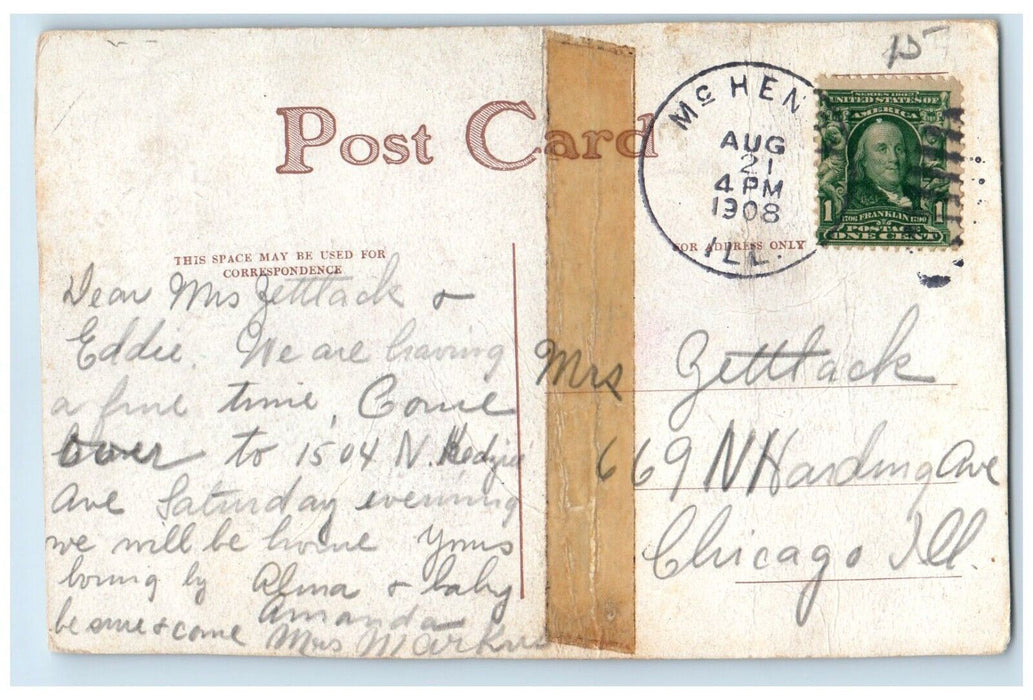 15
Post Card
McHEN
AUG
21
4 PM
1908
ILL.
SERIES 1902
UNITED STATES OF
AMERICA
1706 FRANKLIN 1790
1 POSTAGE 1
ONE CENT
THIS SPACE MAY BE USED FOR
CORRESPONDENCE
FOR ADDRESS ONLY
Dear Mrs Zetttack &
Eddie. We are having
a fine time, Come
over to 1504 N. Kedzie
Ave Saturday evening
we will be home Yours
by Alma & baby
Amanda
be sure & come Mrs
Mrs Zetttack
669 N Harding Ave
Chicago Ill.